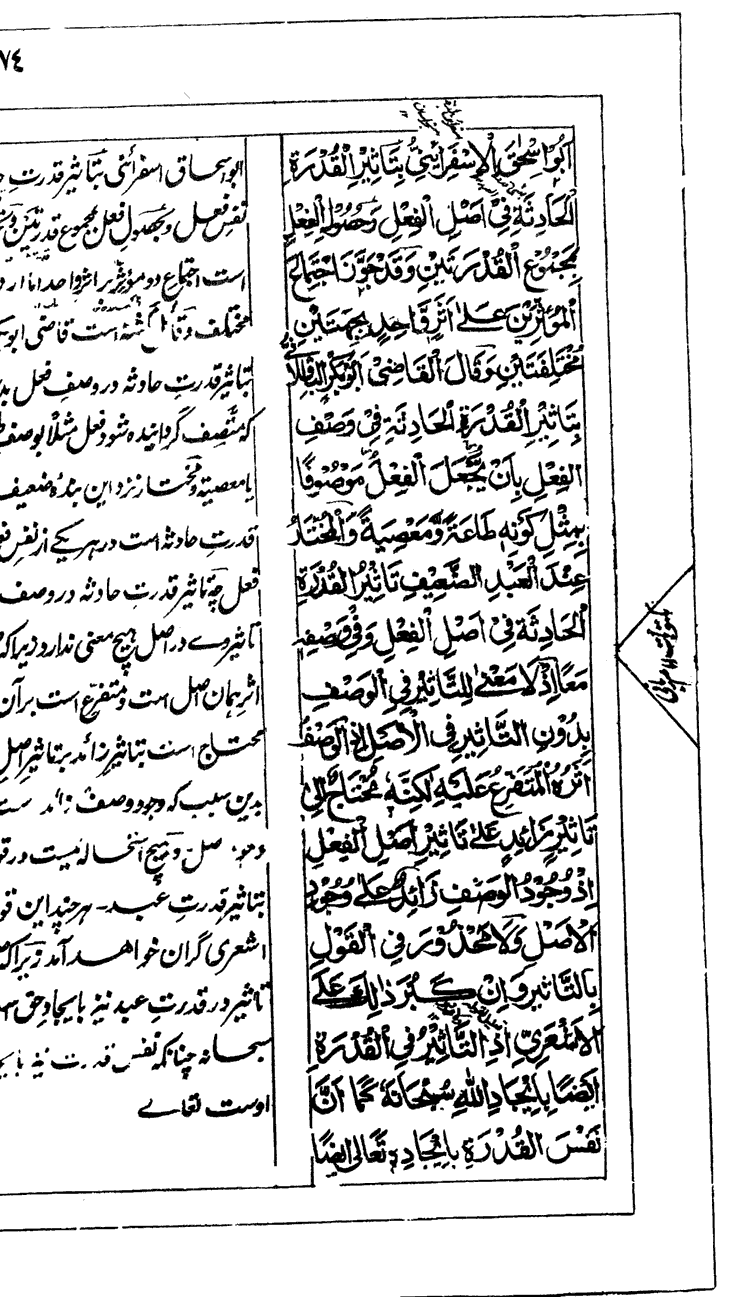 ٧٤
اَبُوْاِسْحٰقَ الْاِسْفَرَائِنِیُّ بِتَاثِیْرِ الْقُدْرَةِ
الْحَادِثَةِ فِیْ اَصْلِ الْفِعْلِ وَحُصُوْلِ الْفِعْلِ
بِمَجْمُوْعِ الْقُدْرَتَیْنِ وَقَدْ جَوَّزَ اجْتِمَاعَ
الْمُؤَثِّرَیْنِ عَلٰی اَثَرٍ وَّاحِدٍ بِجِهَتَیْنِ
مُخْتَلِفَتَیْنِ وَقَالَ الْقَاضِیْ اَبُوْبَکْرِ الْبَاقِلَّانِیُّ
بِتَاثِیْرِ الْقُدْرَةِ الْحَادِثَةِ فِیْ وَصْفِ
الْفِعْلِ بِاَنْ یُّجْعَلَ الْفِعْلُ مَوْصُوْفًا
بِمِثْلِ کَوْنِهٖ طَاعَةً وَّمَعْصِیَةً وَالْمُخْتَارُ
عِنْدَ الْعَبْدِ الضَّعِیْفِ تَاثِیْرُ الْقُدْرَةِ
الْحَادِثَةِ فِیْ اَصْلِ الْفِعْلِ وَفِیْ وَصْفِهٖ
مَعًا اِذْ لَا مَعْنٰی لِلتَّاثِیْرِ فِی الْوَصْفِ
بِدُوْنِ التَّاثِیْرِ فِی الْاَصْلِ اِذِ الْوَصْفُ
اَثَرُهُ الْمُتَفَرِّعُ عَلَیْهِ لٰکِنَّهٗ مُحْتَاجٌ اِلٰی
تَاثِیْرٍ زَائِدٍ عَلٰی تَاثِیْرِ اَصْلِ الْفِعْلِ
اِذْ وُجُوْدُ الْوَصْفِ زَائِدٌ عَلٰی وُجُوْدِ
الْاَصْلِ وَلَا مَحْذُوْرَ فِی الْقَوْلِ
بِالتَّاثِیْرِ وَاِنْ کَبُرَ ذٰلِكَ عَلَی
الْاَشْعَرِیِّ اِذِ التَّاثِیْرُ فِی الْقُدْرَةِ
اَیْضًا بِاِیْجَادِ اللّٰهِ سُبْحَانَهٗ کَمَا اَنَّ
نَفْسَ الْقُدْرَةِ بِاِیْجَادِهٖ تَعَالٰی اَیْضًا
ابو اسحاق اسفرائنی بتاثیر قدرت
نفس فعل و بحصول فعل بمجموع قدرتین و
است اجتماع دو مؤثر بر اثر واحد اما از
مختلف و قائل گشته است قاضی ابو
بتاثیر قدرت حادثه در وصف فعل
که متصف گردانیده شود فعل مثلا بوصف
یا معصیة و مختار نزد این بندهٔ ضعیف
قدرت حادثه است در هر یکے از نفس
فعل چه تاثیر قدرت حادثه در وصف
تاثیر وے در اصل هیچ معنی ندارد زیراکه
اثر همان اصل است و متفرع است بر آن
محتاج است بتاثیر زائد بر تاثیر اصل
بدین سبب که وجود وصف زائد است
اصل و هیچ استحاله نیست در
بتاثیر قدرت عبد۔ هر چند این
اشعری گران خواهد آمد زیراکه
تاثیر در قدرت عبد نیز بایجاد حق
سبحانه چنانکه نفس قدرت نیز
اوست تعالے